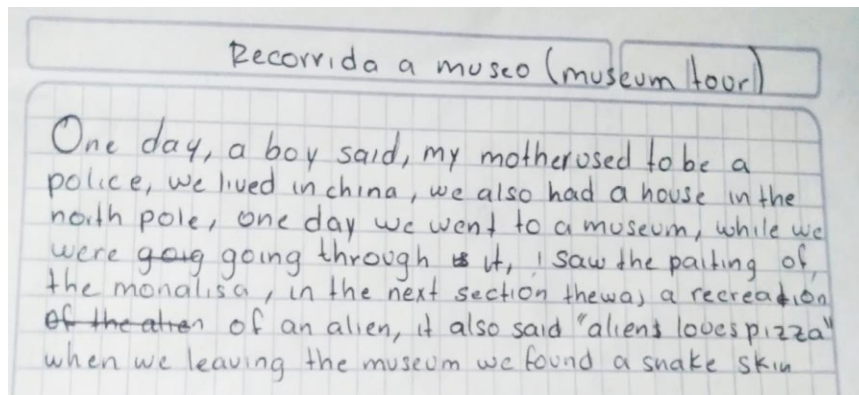 Recorrida a museo (museum tour)
One day, a boy said, my mother used to be a
police, we lived in china, we also had a house in the
north pole, one day we went to a museum, while we
were goig going through is it, i saw the paiting of,
the monalisa, in the next section thewas a recreation
of the alien of an alien, it also said "aliens loves pizza"
when we leaving the museum we found a snake skin